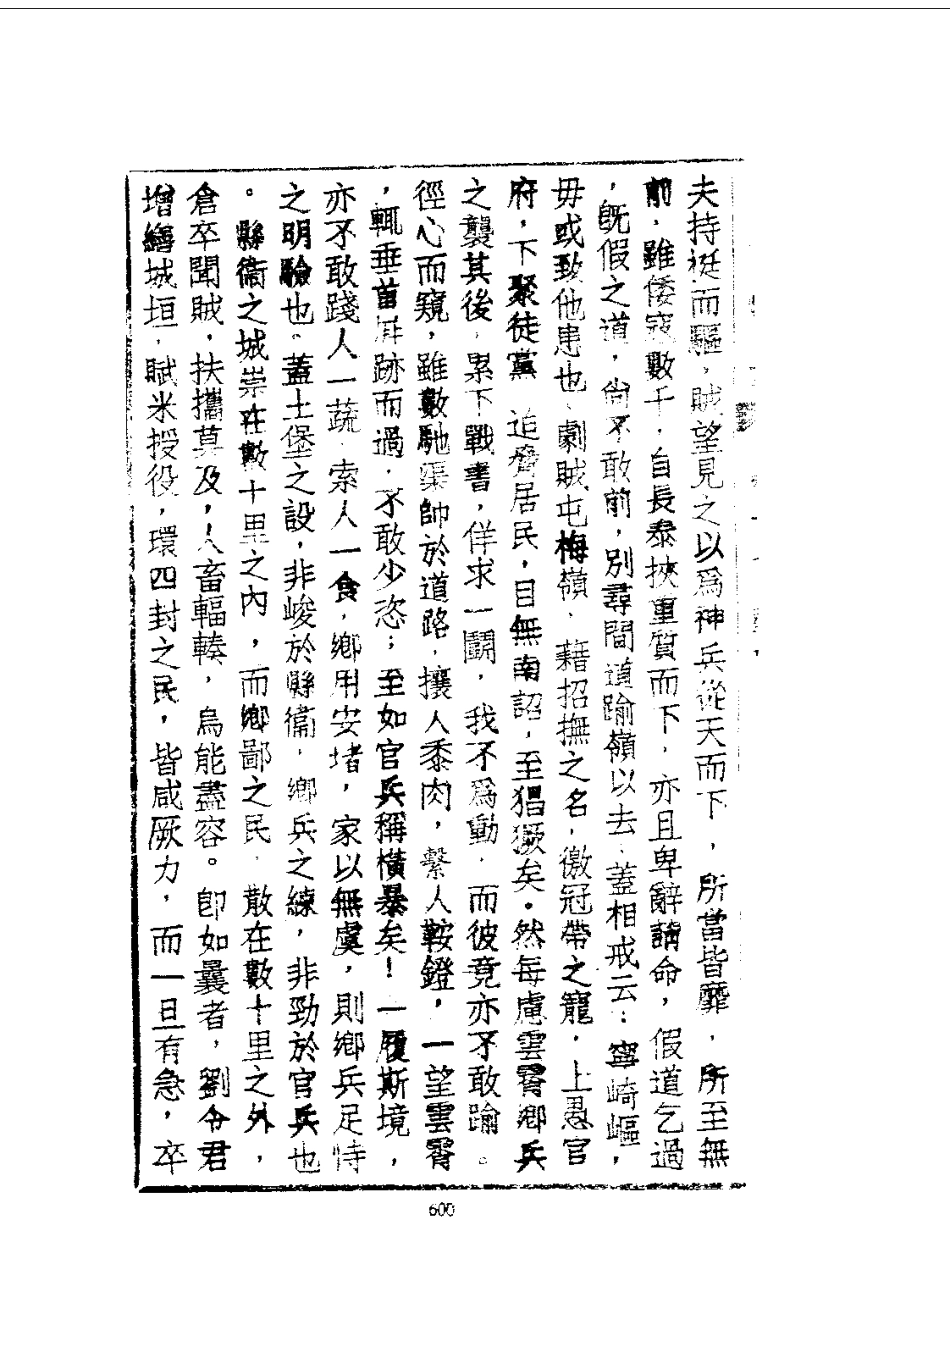 夫持挺而驅，賊望見之以爲神兵從天而下，所當皆靡，所至無
前，雖倭寇數千，自長泰挾重質而下，亦且卑辭請命，假道乞過
，旣假之道，尙不敢前，別尋間道踰嶺以去，蓋相戒云：寧崎嶇，
毋或致他患也，劇賊屯梅嶺，藉招撫之名，徼冠帶之寵，上愚官
府，下聚徒黨 追脅居民，目無南詔，至猖獗矣。然每慮雲霄鄉兵
之襲其後，累下戰書，佯求一鬭，我不爲動，而彼竟亦不敢踰。
徑心而窺，雖數馳渠帥於道路，攘人黍肉，繫人鞍鐙，一望雲霄
，輒垂首屛跡而過，不敢少恣；至如官兵稱橫暴矣！一履斯境，
亦不敢踐人一蔬，索人一食，鄉用安堵，家以無虞，則鄉兵足恃
之明驗也。蓋土堡之設，非峻於縣衞，鄉兵之練，非勁於官兵也
。縣衞之城崇在數十里之內，而鄉鄙之民，散在數十里之外，
倉卒聞賊，扶攜莫及，人畜輻輳，烏能盡容。卽如曩者，劉令君
增繕城垣，賦米授役，環四封之民，皆咸厥力，而一旦有急，卒
600